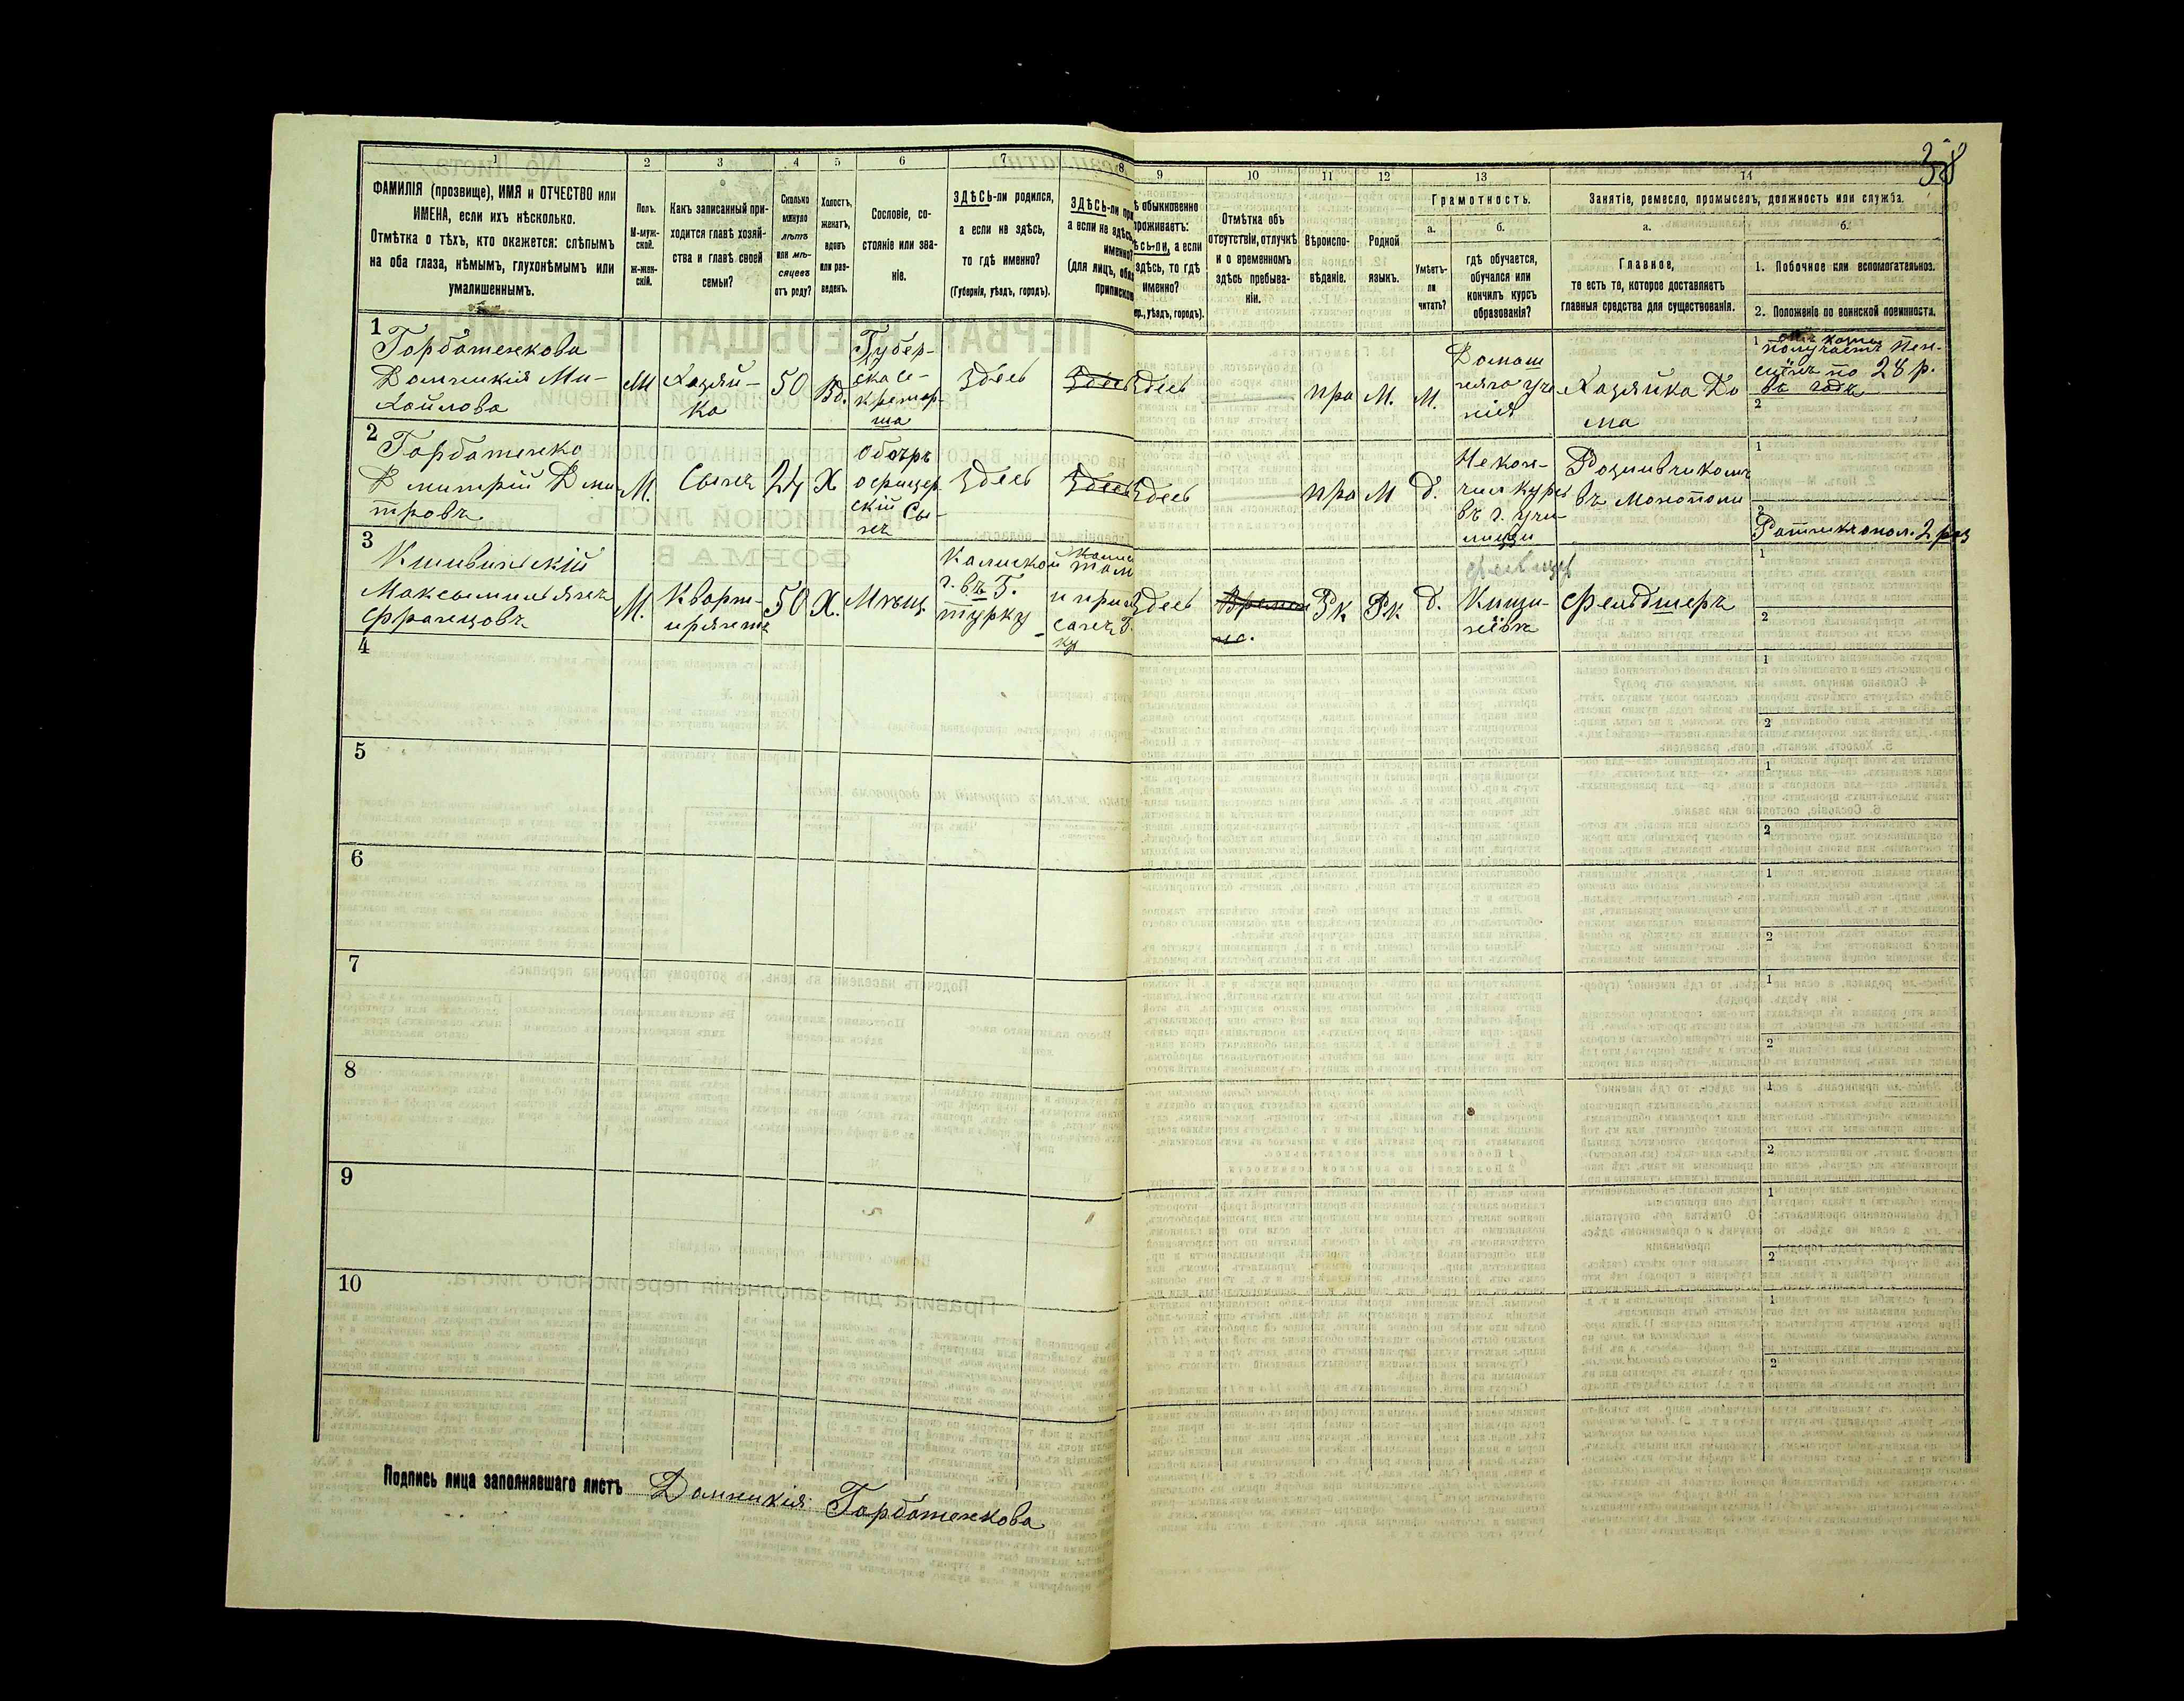 38
1
2
3
4
5
6
7
8
9
10
11
12
13
14
ФАМИЛІЯ (прозвище), ИМЯ и ОТЧЕСТВО или
ИМЕНА, если ихъ нѣсколько.
Отмѣтка о тѣхъ, кто окажется: слѣпымъ
на оба глаза, нѣмымъ, глухонѣмымъ или
умалишеннымъ.
Полъ.
М-муж-
ской.
ж-жен-
скій.
Какъ записанный при-
ходится главѣ хозяй-
ства и главѣ своей
семьи?
Сколько
минуло
лѣтъ
или мѣ-
сяцевъ
отъ роду?
Холостъ,
женатъ,
вдовъ
или раз-
веденъ.
Сословіе, со-
стояніе или зва-
ніе.
ЗДѢСЬ-ли родился,
а если не здѣсь,
то гдѣ именно?
(Губернія, уѣздъ, городъ).
ЗДѢСЬ-ли при
а если не здѣсь,
именно?
(для лицъ, обяз
припискою
ѣ обыкновенно
проживаетъ:
ѣсь-ли, а если
здѣсь, то гдѣ
именно?
ер., уѣздъ, городъ).
Отмѣтка объ
отсутствіи, отлучкѣ
и о временномъ
здѣсь пребыва-
ніи.
Вѣроиспо-
вѣданіе.
Родной
языкъ.
Грамотность.
а.
Умѣетъ-
ли
читать?
б.
гдѣ обучается,
обучался или
кончилъ курсъ
образованія?
Занятіе, ремесло, промыселъ, должность или служба.
а.
Главное,
то есть то, которое доставляетъ
главныя средства для существованія.
б.
1. Побочное или вспомогательное.
2. Положеніе по воинской повинности.
1
Горбатенкова
Домникія Ми-
хайлова
М
Хозяй-
ка
50
Вд.
Губер-
ска се-
кретар-
ша
Здесь
Здесь
Здесь
пра
М.
М.
Домаш
няго уче
нія
Хозяйка До
ма
1
получаетъ пен-
сію по 28 р.
въ годъ
2
2
Горбатенко
Дмитрій Дми
тровъ
М.
Сынъ
24
Х
Оберъ
офицер
скій Сы-
нъ
Здесь
Здесь
Здесь
пра
М
д.
Некон-
чил курс
въ г. учи-
лищи
Розливчикомъ
въ Монополи
1
2
Ратникъ опол. 2 раз
3
Максымильянъ
Францовъ
М.
Кварт-
ирантъ
50
Х.
Мѣщ.
Калиской
г. въ Г.
турку
Здесь
Времен
но.
Рк
Рк
д.
Киши-
невъ
Фельдшеръ
1
2
4
1
2
5
1
2
6
1
2
7
1
2
8
1
2
9
1
2
10
1
2
Подпись лица заполнявшаго листъ Домникія Горбатенкова